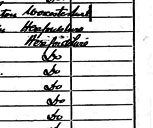 Worcestershire
Herefordshire
Herefordshire
Do
Do
Do
Do
Do
Do